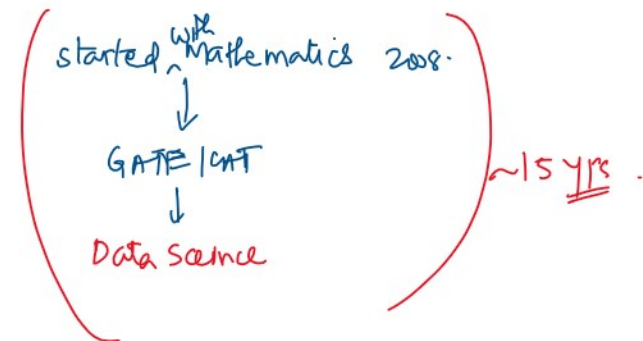 started with Mathematics 2008.
GATE/CAT
Data Science
~15 yrs.